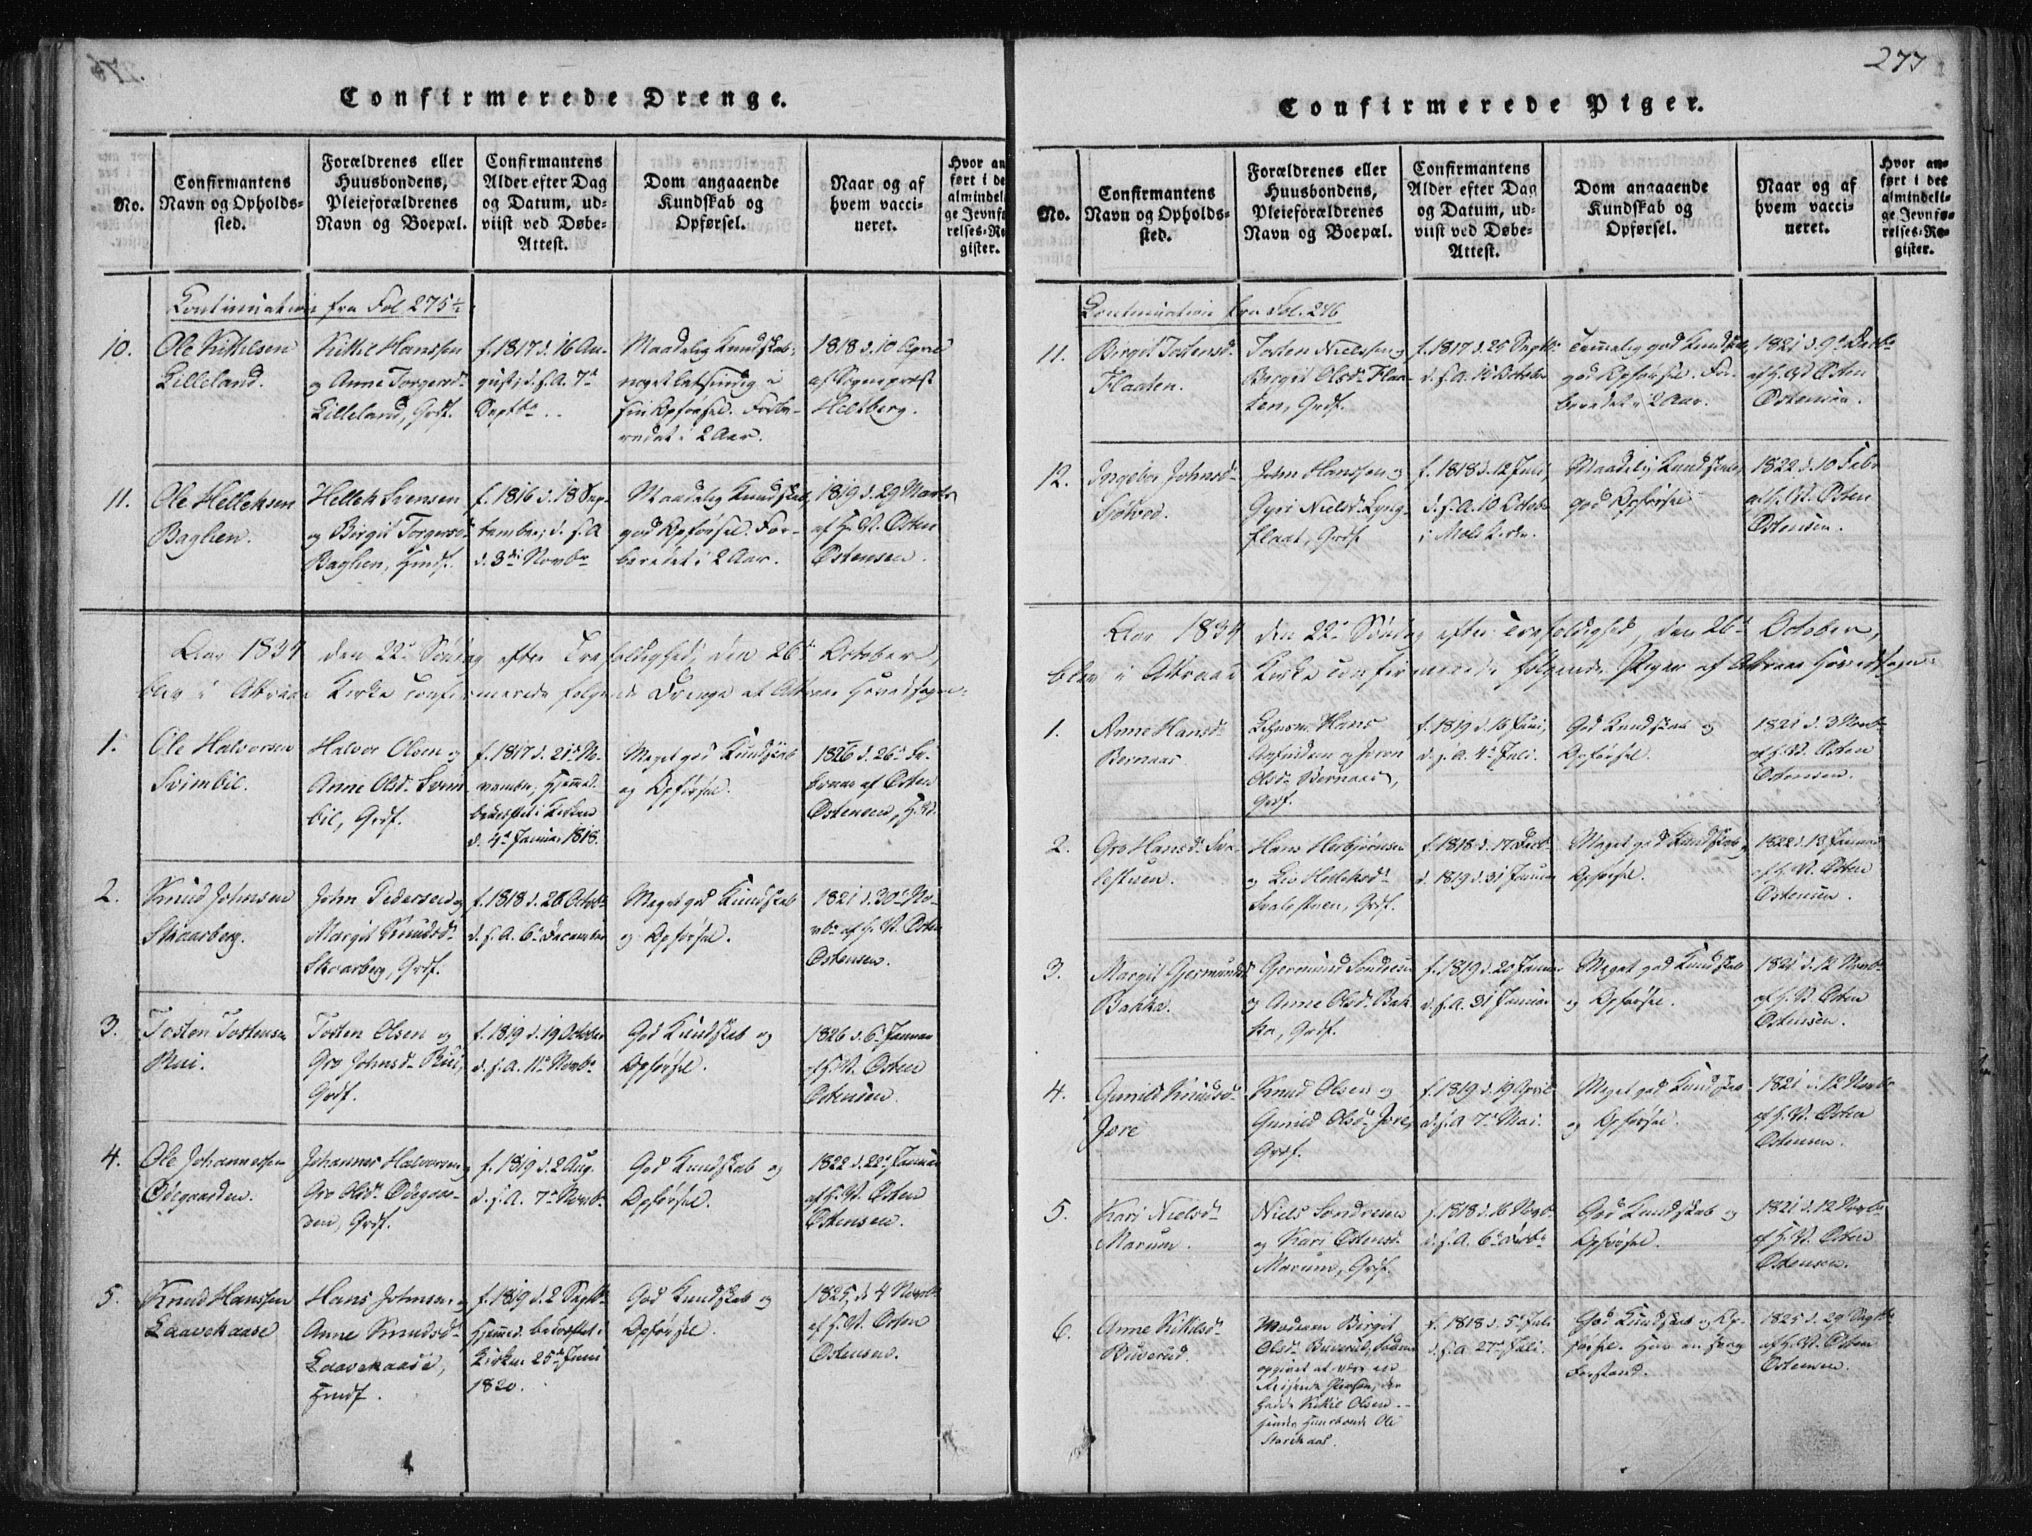 Confirmerede Drenge.
No.
Confirmantens
Navn og Opholds-
sted.
Forældrenes eller
Huusbondens,
Pleieforældrenes
Navn og Boepæl.
Confirmantens
Alder efter Dag
og Datum, ud-
viist ved Døbe-
Attest.
Dom angaaende
Kundskab og
Opførsel.
Naar og af
hvem vacci-
neret.
Hvor an
ført i de
almindel
ge Jevnfø
relses-Re
gister.
Continuation fra Fol 275
10.
Ole Kittilsen
Lilleland.
Kittil Hanssen
og Anne Torgersd.
Lilleland, Grdf.
f. 1817 d. 16 Au-
gust; d. s. A. 7de
Septbr.
Maadelig Kundskab,
noget letsindig i
sin Opførsel. Forbe-
redet i 2 Aar.
1818 d. 10 April
af Sognepræst
Heltberg.
11.
Ole Helleksen
Baglien.
Hellek Svensen
og Birgit Torgersd.
Baglien, Huusf.
f. 1816 d. 18 Sep-
tember; d. s. A
d. 3die Novbr
Maadelig Kundskab,
god Opførsel. For-
beredet i 2 Aar.
1819 d. 29 Marts
af H. V. Østen
Østensen.
Aar 1834 den 22de Søndag efter Trefoldighed, den 26de October,
blev i Attraae Kirke confirmerede følgende Drenge af Attraae Hovedsogn.
1.
Ole Halvorsen
Svimbil.
Halvor Olsen og
Anne Olsd. Svim-
bil, Grdf.
f. 1817 d. 21de No-
vember, Hjemmed.
bekræftet i Kirken
d. 4de Januar 1818.
Meget god Kundskab
og Opførsel.
1826 d. 26de Fe-
bruar af Østen
Østensen, H. V.
2.
Knud Johnsen
Skaarberg.
John Pedersen og
Margit Knudsd.
Skaarberg, Grdf.
f. 1818 d. 28 Octobr
d. s. A. 6te December
Meget god Kundskab
og Opførsel.
1821 d. 30te No-
vbr af H. V. Østen
Østensen.
3.
Tosten Tostensen
Rui.
Tosten Olsen og
Gro Johnsd. Rui,
Grdf.
f. 1819 d. 19 October
d. s. A. 11te Novbr
God Kundskab og
Opførsel.
1826 d. 6te Januar
af H. V. Østen
Østensen.
4.
Ole Johannesen
Ødegaarden.
Johannes Halvorsen og
Gro Olsd. Ødegaar-
den, Grdf.
f. 1819 d. 2 Aug.
d. s. A. 7de Novbr
God Kundskab og
Opførsel.
1822 d. 22de Januar
af H. V. Østen
Østensen.
5.
Knud Hanssen
Laavekaase
Hans Johnsen og
Anne Knudsd.
Laavekaase,
Huusf.
f. 1819 d. 2 Septbr
Hjemmed. bekræftet i
Kirken 25de Juni
1820.
God Kundskab og
Opførsel.
1825 d. 4 Novbr
af H. V. Østen
Østensen.
277
Confirmerede Piger.
No.
Confirmantens
Navn og Opholds-
sted.
Forældrenes eller
Huusbondens,
Pleieforældrenes
Navn og Boepæl.
Confirmantens
Alder efter Dag
og Datum, ud-
viist ved Døbe-
Attest.
Dom angaaende
Kundskab og
Opførsel.
Naar og af
hvem vacci-
neret.
Hvor an-
ført i det
almindeli-
ge Jevnfø-
relses-Re-
gister.
Continuation fra Fol. 276
11.
Birgit Tostensd.
Flaaten.
Tosten Nielssen og
Bergit Olsd. Flaa-
ten, Grdf.
f. 1817 d. 25 Septbr
d. s. A. 15 October
Temmelig god Kundskab,
god Opførsel. For-
beredet i 2 Aar.
1821 d. 9de Decbr
af H. V. Østen
Østensen.
12.
Ingebor Johnsd.
John Hanssen og
Gyro Nielsd. Lyng-
flaat, Grdf.
f. 1818 d. 12 Juli,
d. s. A. 10 Octobr
i Mæls Kirke.
Maadelig Kundskab,
god Opførsel.
1822 d. 10 Febr
af H. V. Østen
Østensen.
Aar 1834 den 22de Søndag efter Trefoldighed, den 26de October,
blev i Attraae Kirke confirmerede følgende Piger af Attraae Hovedsogn.
1.
Anne Hansd.
Bernaas
Hans
og Joren
Olsd. Bernaas,
Grdf.
f. 1819 d. 16 Juni,
d. s. A. 4de Juli.
God Kundskab og
Opførsel.
1821 d. 3 Novbr
af H. V. Østen
Østensen.
2.
Gro Hansd. Sva-
lestuen.
Hans Herbjørnsen
og Liv Helleksd.
Svalestuen, Grdf.
f. 1818 d. 17 Decbr
d. 1819 d. 31 Januar
Meget god Kundskab og
Opførsel.
1822 d. 13 Januar
af H. V. Østen
Østensen.
3.
Margit Germundsd.
Bakka.
Germund Sondresen
og Anne Olsd. Bak-
ka, Grdf.
f. 1819 d. 20 Januar
d. s. A. 31 Januar
Meget god Kundskab
og Opførsel.
1821 d. 12 Novbr
af H. V. Østen
Østensen.
4.
Gunild Knudsd.
Jore
Knud Olsen og
Gunild Olsd. Jore,
Grdf.
f. 1819 d. 19 April
d. s. A 7de Mai.
Meget god Kundskab
og Opførsel.
1821 d. 12 Novbr
af H. V. Østen
Østensen.
5.
Kari Nielsd.
Marum.
Niels Sondresen
og Kari Østensd.
Marum, Grdf.
f. 1818 d. 16 Novbr
d. s. A. 6te Decbr
God Kundskab og
Opførsel.
1821 d. 12 Novbr
af H. V. Østen
Østensen.
6.
Anne Kittilsd.
Buverud.
Moderen Birgit
Olsd. Buverud, Faderen
opgivet at være en
Reisende Person, der
hedder Kittil Olsen.
hendes Huusbonde Ole
f. 1818 d. 5te Juli
d. s. A 27de Juli.
God Kundskab og Op-
førsel. Har en svag
Forstand.
1825 d. 29 Septbr
af H. V. Østen
Østensen.